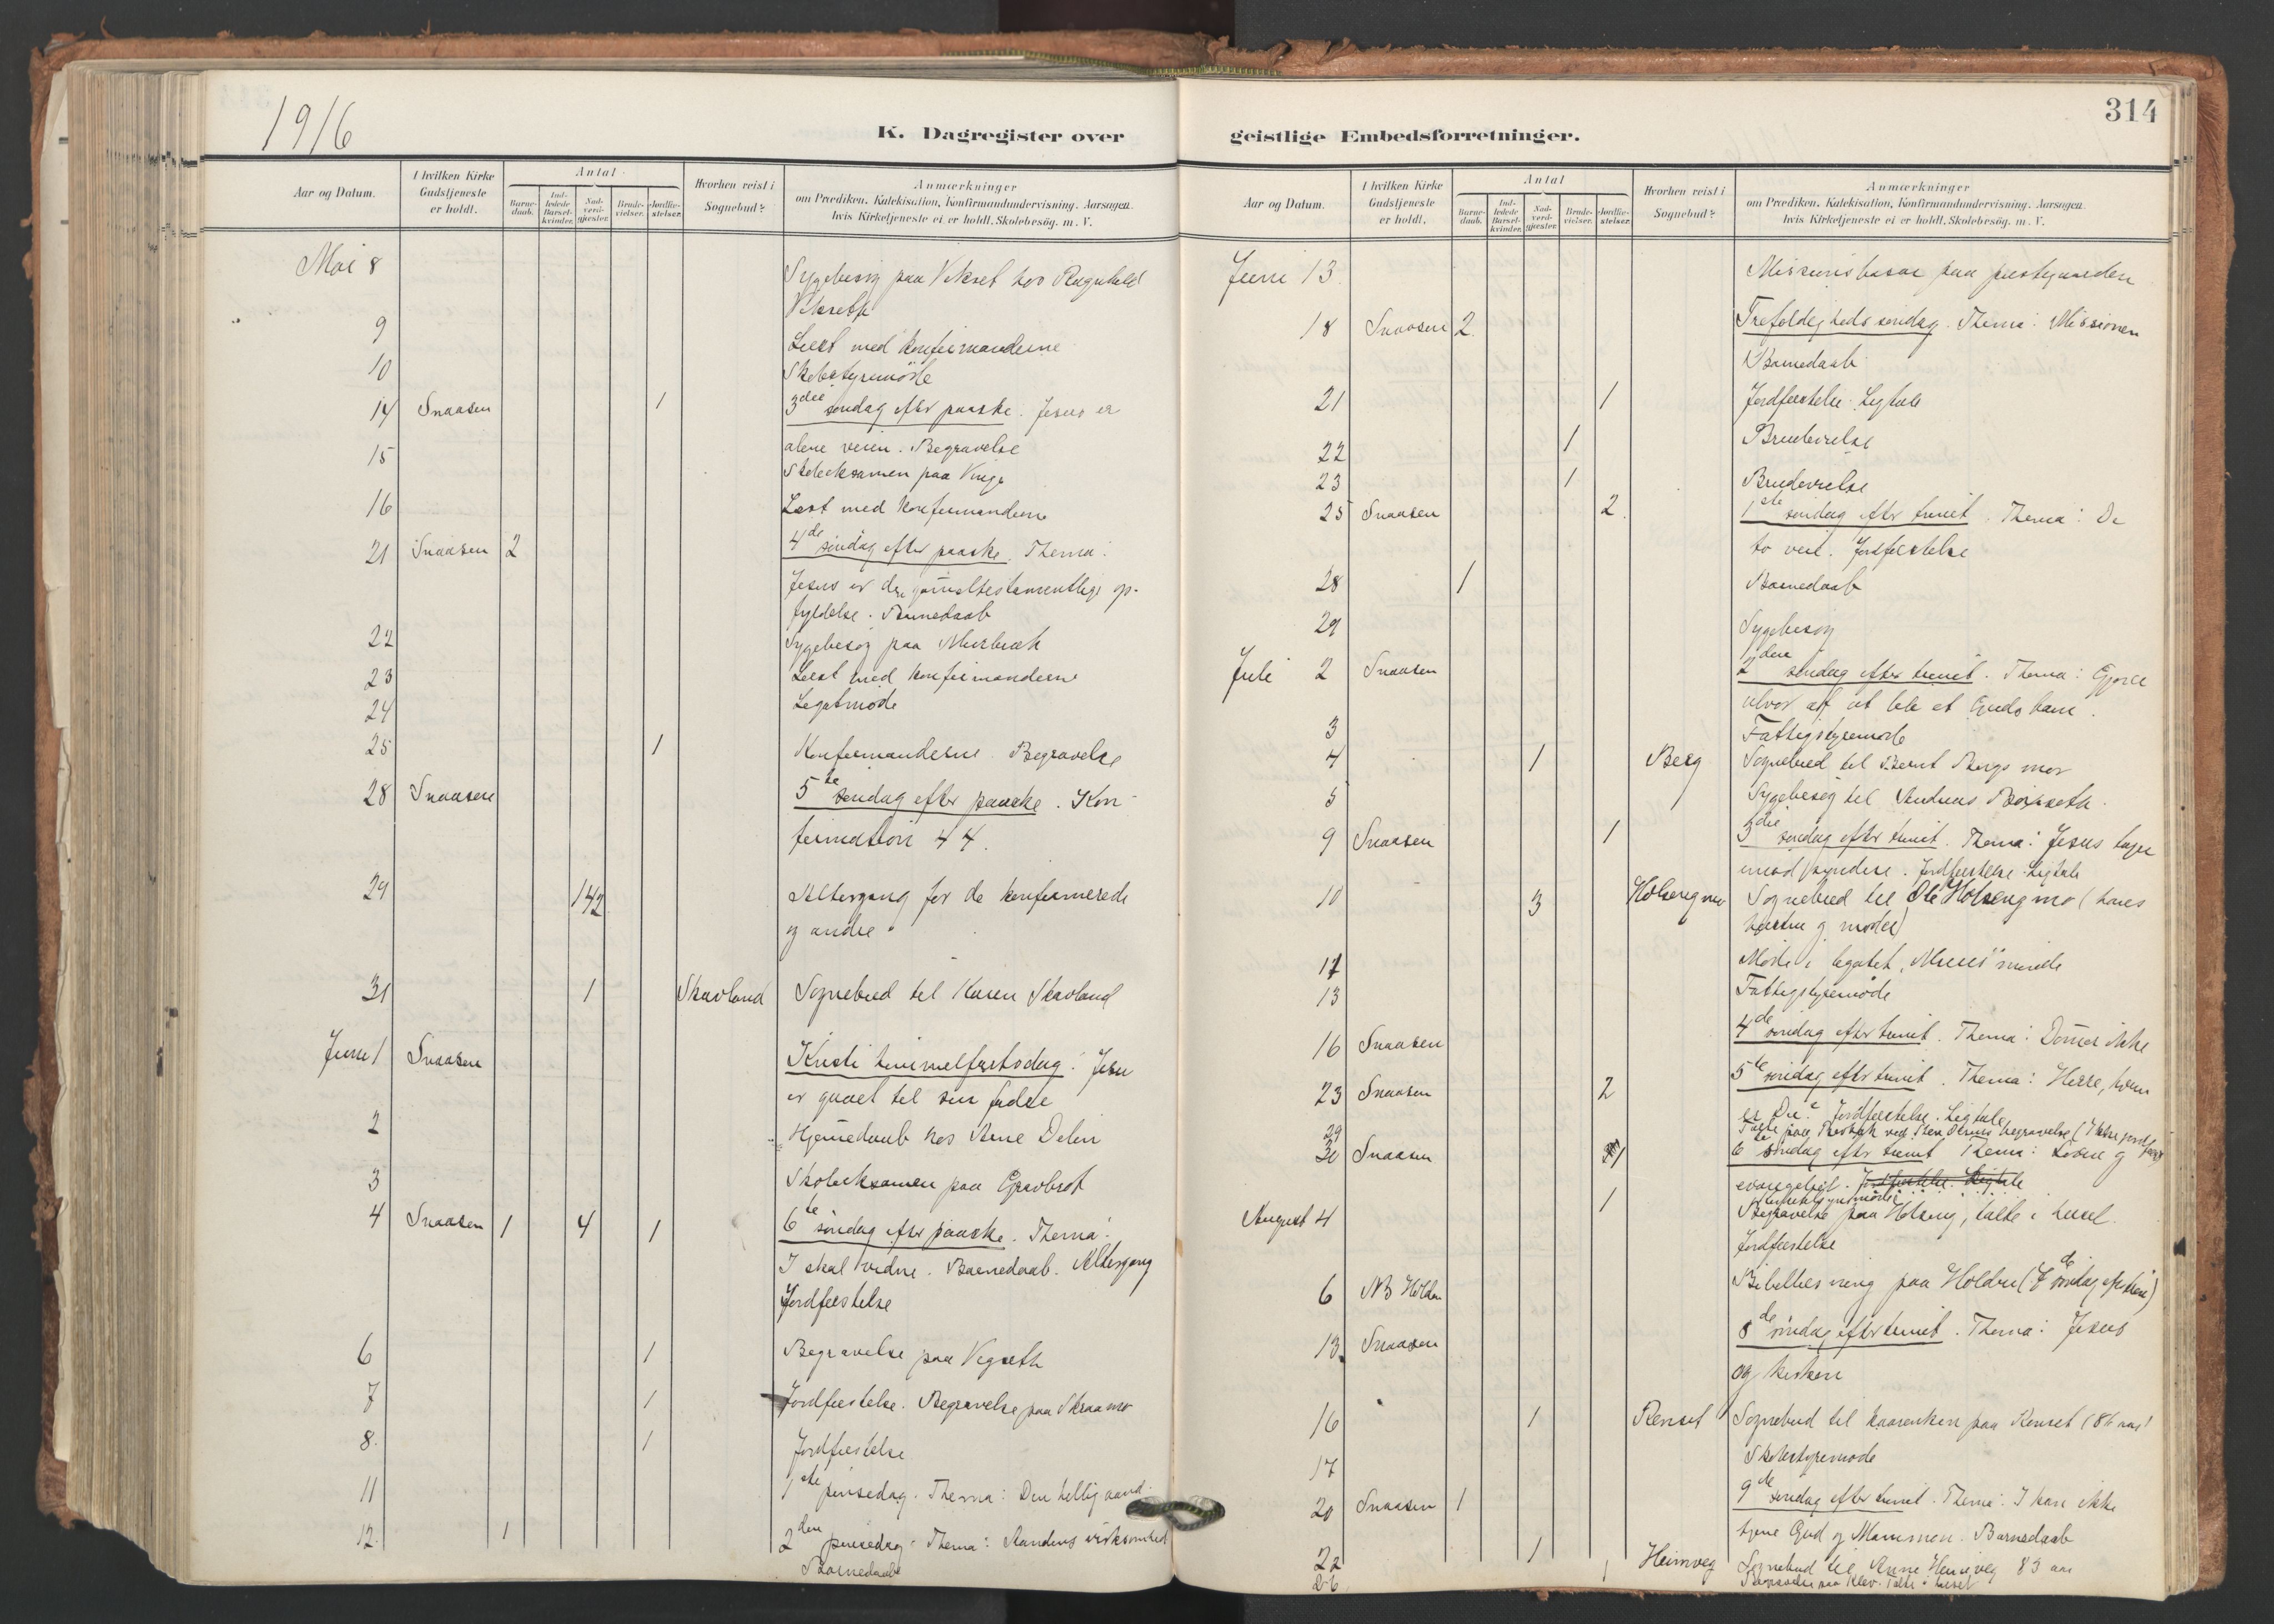 1916
K. Dagregister over
Aar og Datum.
I hvilken Kirke
Gudstjeneste
er holdt.
Antal
Barne-
daab.
Ind-
ledede
Barsel-
kvinder.
Nad-
verd-
gjæster.
Brude-
vielser.
Jordfæ-
stelser.
Hvorhen reist i
Sognebud?
Anmærkninger
om Prædiken, Katekisation, Konfirmandundervisning. Aarsagen
hvis Kirketjeneste ei er holdt. Skolebesög. m. V.
Mai 8 Sygebesøg paa Vekset hos Ragnhild
Vekseth
9 Læst med konfirmanderne
10 Skolestyremöde
14 Snaasen 1 3die søndag efter paaske. Jesus er
alene veien. Begravelse
15 Skoleeksamen paa
16 Læst med konfirmanderne
21 Snaasen 2 4de søndag efter paaske. Thema:
Jesus er den gammeltestamentlige op-
fyldelse. Barnedaab
22 Sygebesøg paa
23 Læst med konfirmanderne
24 Legatmöde
25 1 Konfirmanderne. Begravelse
28 Snaasen 5te søndag efter paaske. Kon-
firmation 44.
29 142 Altergang for de konfirmerede
og andre
31 1 Skavland Sognebud til Karen Skavland
Juni 1 Snaasen Kristi himmelfartsdag: Jesu
er gaaet til sin fader
2 Hjemmedaab hos Arne
3 Skoleeksamen paa
4 Snaasen 1 4 1 6te søndag efter paaske. Thema:
I skal vidne. Barnedaab. Altergang
Jordfæstelse
6 1 Begravelse paa Vegseth
7 1 Jordfæstelse. Begravelse paa
8. 1 Jordfæstelse
11 1ste pinsedag. Thema: Den hellig aand.
12. 1 2den pinsedag. Thema: Aandens virksomhed
Barnedaab
314
geistlige Embedsforretninger.
Aar og Datum.
I hvilken Kirke
Gudstjeneste
er holdt.
Antal
Barne-
daab.
Ind-
ledede
Barsel-
kvinder.
Nad-
verd-
gjæster.
Brude-
vielser.
Jordfæ-
stelser.
Hvorhen reist i
Sognebud?
Anmærkninger
om Prædiken, Katekisation, Konfirmandundervisning. Aarsagen
hvis Kirketjeneste ei er holdt. Skolebesög. m. V.
Juni 13. Missionsbasar paa prestegaarden
18 Snaasen 2. Trefoldigheds søndag. Thema: Missionen
Barnedaab
21 1 Jordfæstelse. Ligtale
22 1 Brudevielse
23 1 Brudevielse
25 Snaasen 2. 1ste søndag efter trinit. Thema: De
to veie. Jordfæstelse
28 1 Barnedaab
29 Sygebesøg
Juli 2 Snaasen 2den søndag efter trinit. Thema: Gjøre
alvor af at
3 Fattigstyremöde
4 1 Berg Sognebud til Bernt Bergs mor
5 Sygebesøg til Andreas
9 Snaasen 1 3die søndag efter trinit. Thema: Jesus tager
mod syndere. Jordfæstelse. Ligtale
10 3 Holsengmo Sognebud til Ole Holsengmo (hans
hustru og moder)
11 Möde i legatet,
13 Fattigstyremöde
16 Snaasen 4de søndag efter trinit. Thema: Dömer ikke
23 Snaasen 2 5te søndag efter trinit. Thema: Herre, hvem
er Du? Jordfæstelse. Ligtale
29 Talte paa ved begravelse
30 Snaasen 1 6te søndag efter trinit. Thema: Loven og
evangeliet. Jordfæstelse. Ligtale
August 4 1 Begravelse paa Holseng, talte i huset.
Jordfæstelse
6 NB Holden Bibellæsning paa Holden (7de søndag
13. Snaasen 8de søndag efter trinit. Thema: Jesus
og kirken
16 1 Renset Sognebud til paa Renset (86 aar)
17 Skolestyremöde
20 Snaasen 1 9de søndag efter trinit. Thema: I kan ikke
tjene Gud og Mammon. Barnedaab
22 1 Heimveg Sognebud til Anne Heimveg 83 aar
26 1 Begravelse paa Klev. Talte i huset